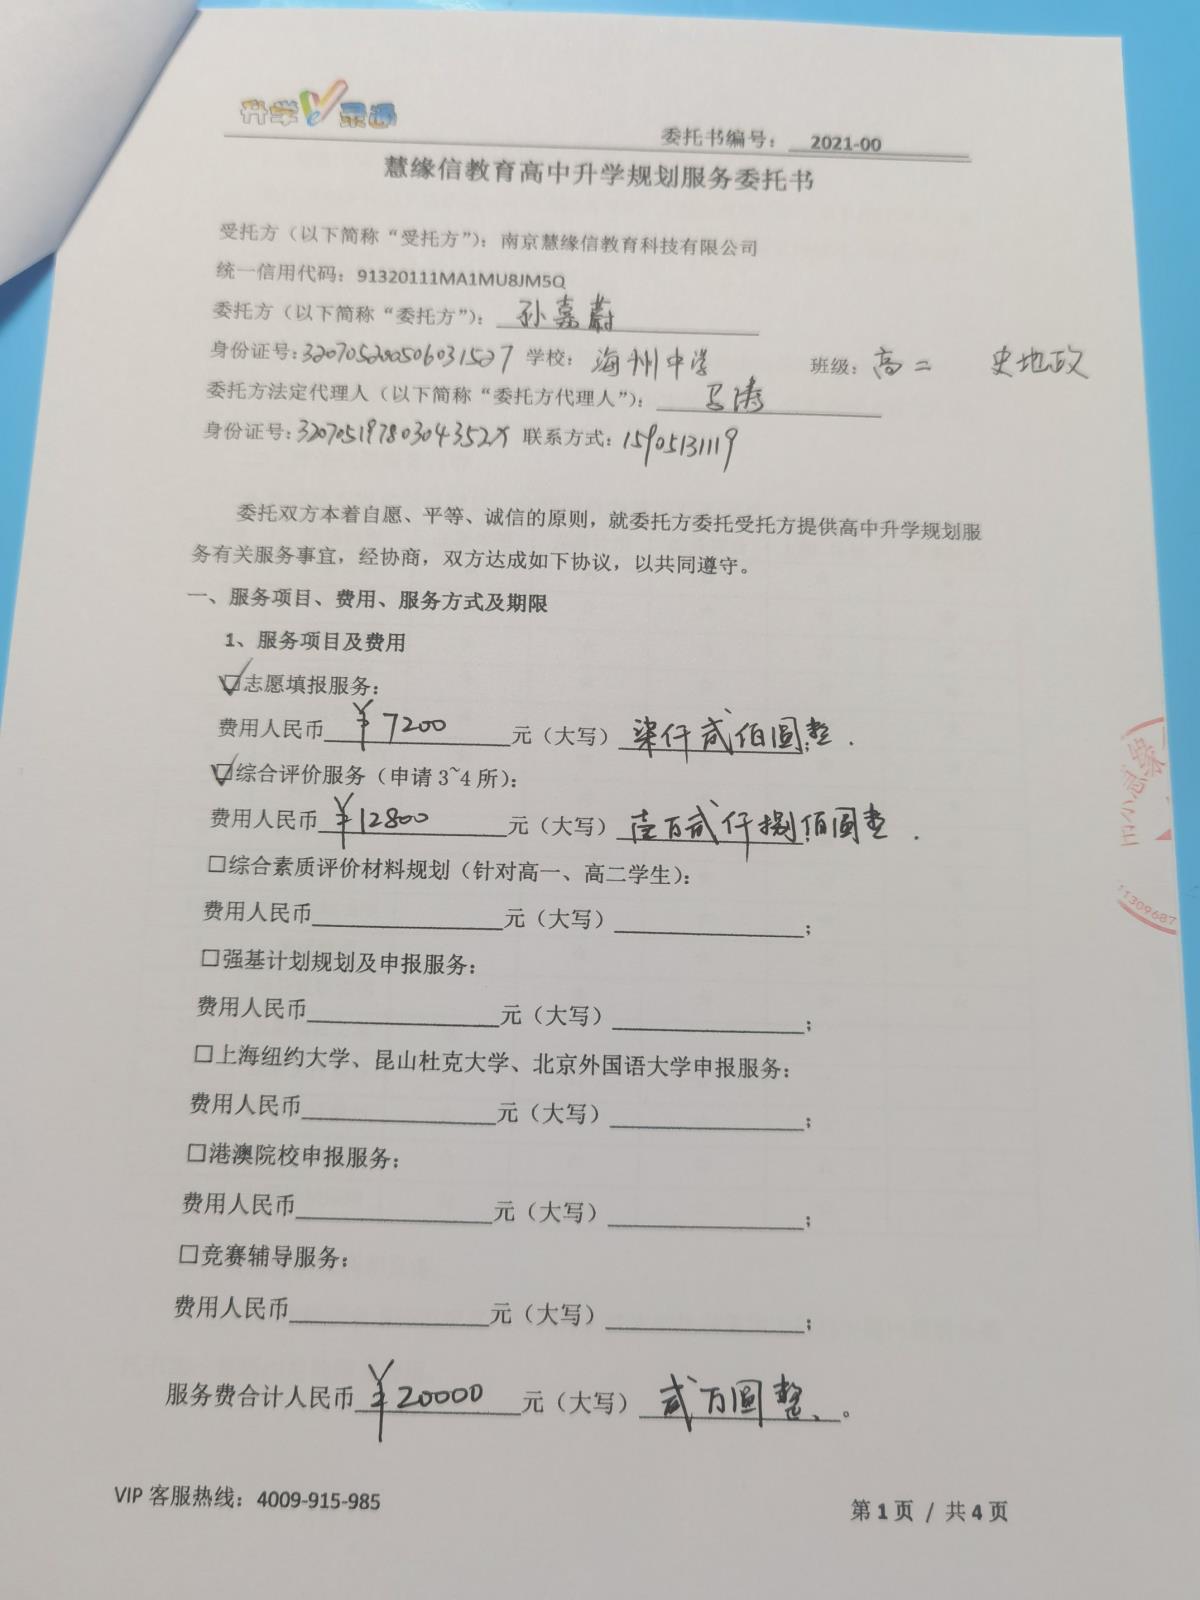 升学e录通
委托书编号： 2021-00
慧缘信教育高中升学规划服务委托书
受托方（以下简称“受托方”）：南京慧缘信教育科技有限公司
统一信用代码：91320111MA1MU8JM5Q
委托方（以下简称“委托方”）：孙嘉蔚
身份证号：320705200506031527 学校：海州中学 班级：高二 史地政
委托方法定代理人（以下简称“委托方代理人”）：马涛
身份证号：32070519780304352X 联系方式：15905131119
委托双方本着自愿、平等、诚信的原则，就委托方委托受托方提供高中升学规划服
务有关服务事宜，经协商，双方达成如下协议，以共同遵守。
一、服务项目、费用、服务方式及期限
1、服务项目及费用
☑志愿填报服务：
费用人民币 ¥7200 元（大写）柒仟贰佰圆整.
☑综合评价服务（申请3~4所）：
费用人民币 ¥12800 元（大写）壹万贰仟捌佰圆整.
□综合素质评价材料规划（针对高一、高二学生）：
费用人民币________元（大写）________；
□强基计划规划及申报服务：
费用人民币________元（大写）________；
□上海纽约大学、昆山杜克大学、北京外国语大学申报服务：
费用人民币________元（大写）________；
□港澳院校申报服务：
费用人民币________元（大写）________；
□竞赛辅导服务：
费用人民币________元（大写）________；
服务费合计人民币 ¥20000 元（大写）贰万圆整。
VIP 客服热线：4009-915-985
第 1 页 / 共 4 页